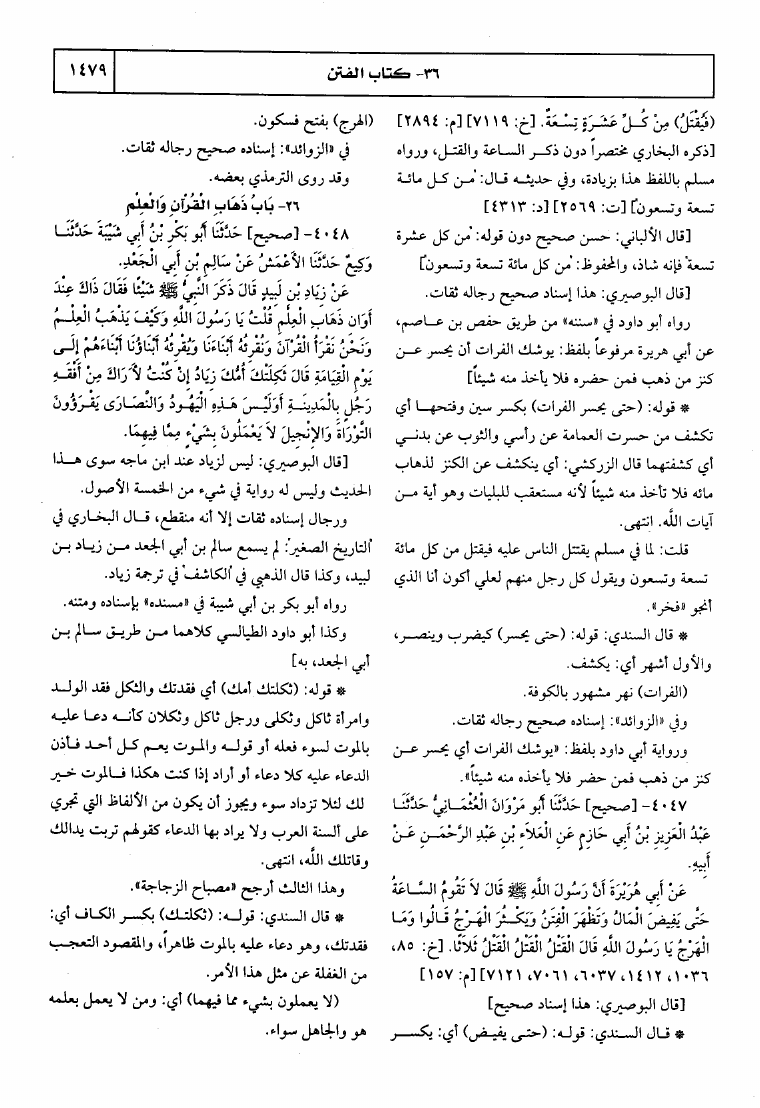 ٣٦- كتاب الفتن
١٤٧٩
(فَيُقْتَلُ) مِنْ كُلِّ عَشَرَةٍ تِسْعَةٌ. [خ: ٧١١٩] [م: ٢٨٩٤]
[ذكره البخاري مختصراً دون ذكر الساعة والقتل، ورواه
مسلم باللفظ هذا بزيادة، وفي حديثه قال: "من كل مائة
تسعة وتسعون] [ت: ٢٥٦٩] [د: ٤٣١٣]
[قال الألباني: حسن صحيح دون قوله: "من كل عشرة
تسعة" فإنه شاذ، والمحفوظ: "من كل مائة تسعة وتسعون]
[قال البوصيري: هذا إسناد صحيح رجاله ثقات.
رواه أبو داود في «سننه» من طريق حفص بن عاصم،
عن أبي هريرة مرفوعاً بلفظ: يوشك الفرات أن يحسر عن
كنز من ذهب فمن حضره فلا يأخذ منه شيئاً]
* قوله: (حتى يحسر الفرات) بكسر سين وفتحها أي
تكشف من حسرت العمامة عن رأسي والثوب عن بدني
أي كشفتهما قال الزركشي: أي ينكشف عن الكنز لذهاب
مائه فلا تأخذ منه شيئاً لأنه مستعقب للبليات وهو أية من
آيات الله. انتهى.
قلت: لما في مسلم يقتتل الناس عليه فيقتل من كل مائة
تسعة وتسعون ويقول كل رجل منهم لعلي أكون أنا الذي
أنجو «فخر».
* قال السندي: قوله: (حتى يحسر) كيضرب وينصر،
والأول أشهر أي: يكشف.
(الفرات) نهر مشهور بالكوفة.
وفي «الزوائد»: إسناده صحيح رجاله ثقات.
ورواية أبي داود بلفظ: «يوشك الفرات أي يحسر عن
كنز من ذهب فمن حضر فلا يأخذه منه شيئاً».
٤٠٤٧- [صحيح] حَدَّثَنَا أَبو مَرْوَانَ الْعُثْمَانِيُّ حَدَّثَنَا
عَبْدُ الْعَزِيزِ بْنُ أَبِي حَازِمٍ عَنِ الْعَلَاءِ بْنِ عَبْدِ الرَّحْمَنِ عَنْ
أَبِيهِ.
عَنْ أَبِي هُرَيْرَةَ أَنَّ رَسُولَ اللَّهِ ﷺ قَالَ لاَ تَقُومُ السَّاعَةُ
حَتَّى يَفِيضَ الْمَالُ وَتَظْهَرَ الْفِتَنُ وَيَكْثُرَ الْهَرْجُ قَالُوا وَمَا
الْهَرْجُ يَا رَسُولَ اللَّهِ قَالَ الْقَتْلُ الْقَتْلُ الْقَتْلُ ثَلاَثًا. [خ: ٨٥،
١٠٣٦، ١٤١٢، ٦٠٣٧، ٧٠٦١، ٧١٢١] [م: ١٥٧]
[قال البوصيري: هذا إسناد صحيح]
* قال السندي: قوله: (حتى يفيض) أي: يكسر
(الهرج) بفتح فسكون.
في «الزوائد»: إسناده صحيح رجاله ثقات.
وقد روى الترمذي بعضه.
٢٦- بَابُ ذَهَابِ الْقُرْآنِ وَالْعِلْمِ
٤٠٤٨- [صحيح] حَدَّثَنَا أَبُو بَكْرِ بْنُ أَبِي شَيْبَةَ حَدَّثَنَا
وَكِيعٌ حَدَّثَنَا الأَعْمَشُ عَنْ سَالِمِ بْنِ أَبِي الْجَعْدِ.
عَنْ زِيَادِ بْنِ لَبِيدٍ قَالَ ذَكَرَ النَّبِيُّ ﷺ شَيْئًا فَقَالَ ذَاكَ عِنْدَ
أَوَانِ ذَهَابِ الْعِلْمِ قُلْتُ يَا رَسُولَ اللَّهِ وَكَيْفَ يَذْهَبُ الْعِلْمُ
وَنَحْنُ نَقْرَأُ الْقُرْآنَ وَنُقْرِئُهُ أَبْنَاءَنَا وَيُقْرِئُهُ أَبْنَاؤُنَا أَبْنَاءَهُمْ إِلَى
يَوْمِ الْقِيَامَةِ قَالَ ثَكِلَتْكَ أُمُّكَ زِيَادُ إِنْ كُنْتُ لأَرَاكَ مِنْ أَفْقَهِ
رَجُلٍ بِالْمَدِينَةِ أَوَلَيْسَ هَذِهِ الْيَهُودُ وَالنَّصَارَى يَقْرَؤُونَ
التَّوْرَاةَ وَالإِنْجِيلَ لاَ يَعْمَلُونَ بِشَيْءٍ مِمَّا فِيهِمَا.
[قال البوصيري: ليس لزياد عند ابن ماجه سوى هذا
الحديث وليس له رواية في شيء من الخمسة الأصول.
ورجال إسناده ثقات إلا أنه منقطع، قال البخاري في
"التاريخ الصغير": لم يسمع سالم بن أبي الجعد من زياد بن
لبيد، وكذا قال الذهبي في "الكاشف" في ترجمة زياد.
رواه أبو بكر بن أبي شيبة في «مسنده» بإسناده ومتنه.
وكذا أبو داود الطيالسي كلاهما من طريق سالم بن
أبي الجعد، به]
* قوله: (ثكلتك أمك) أي فقدتك والثكل فقد الولد
وامرأة ثاكل وثكلى ورجل ثاكل وثكلان كأنه دعا عليه
بالموت لسوء فعله أو قوله والموت يعم كل أحد فأذن
الدعاء عليه كلا دعاء أو أراد إذا كنت هكذا فالموت خير
لك لئلا تزداد سوء ويجوز أن يكون من الألفاظ التي تجري
على ألسنة العرب ولا يراد بها الدعاء كقولهم تربت يدالك
وقاتلك الله، انتهى.
وهذا الثالث أرجح «مصباح الزجاجة».
* قال السندي: قوله: (ثكلتك) بكسر الكاف أي:
فقدتك، وهو دعاء عليه بالموت ظاهراً، والمقصود التعجب
من الغفلة عن مثل هذا الأمر.
(لا يعملون بشيء مما فيهما) أي: ومن لا يعمل بعلمه
هو والجاهل سواء.